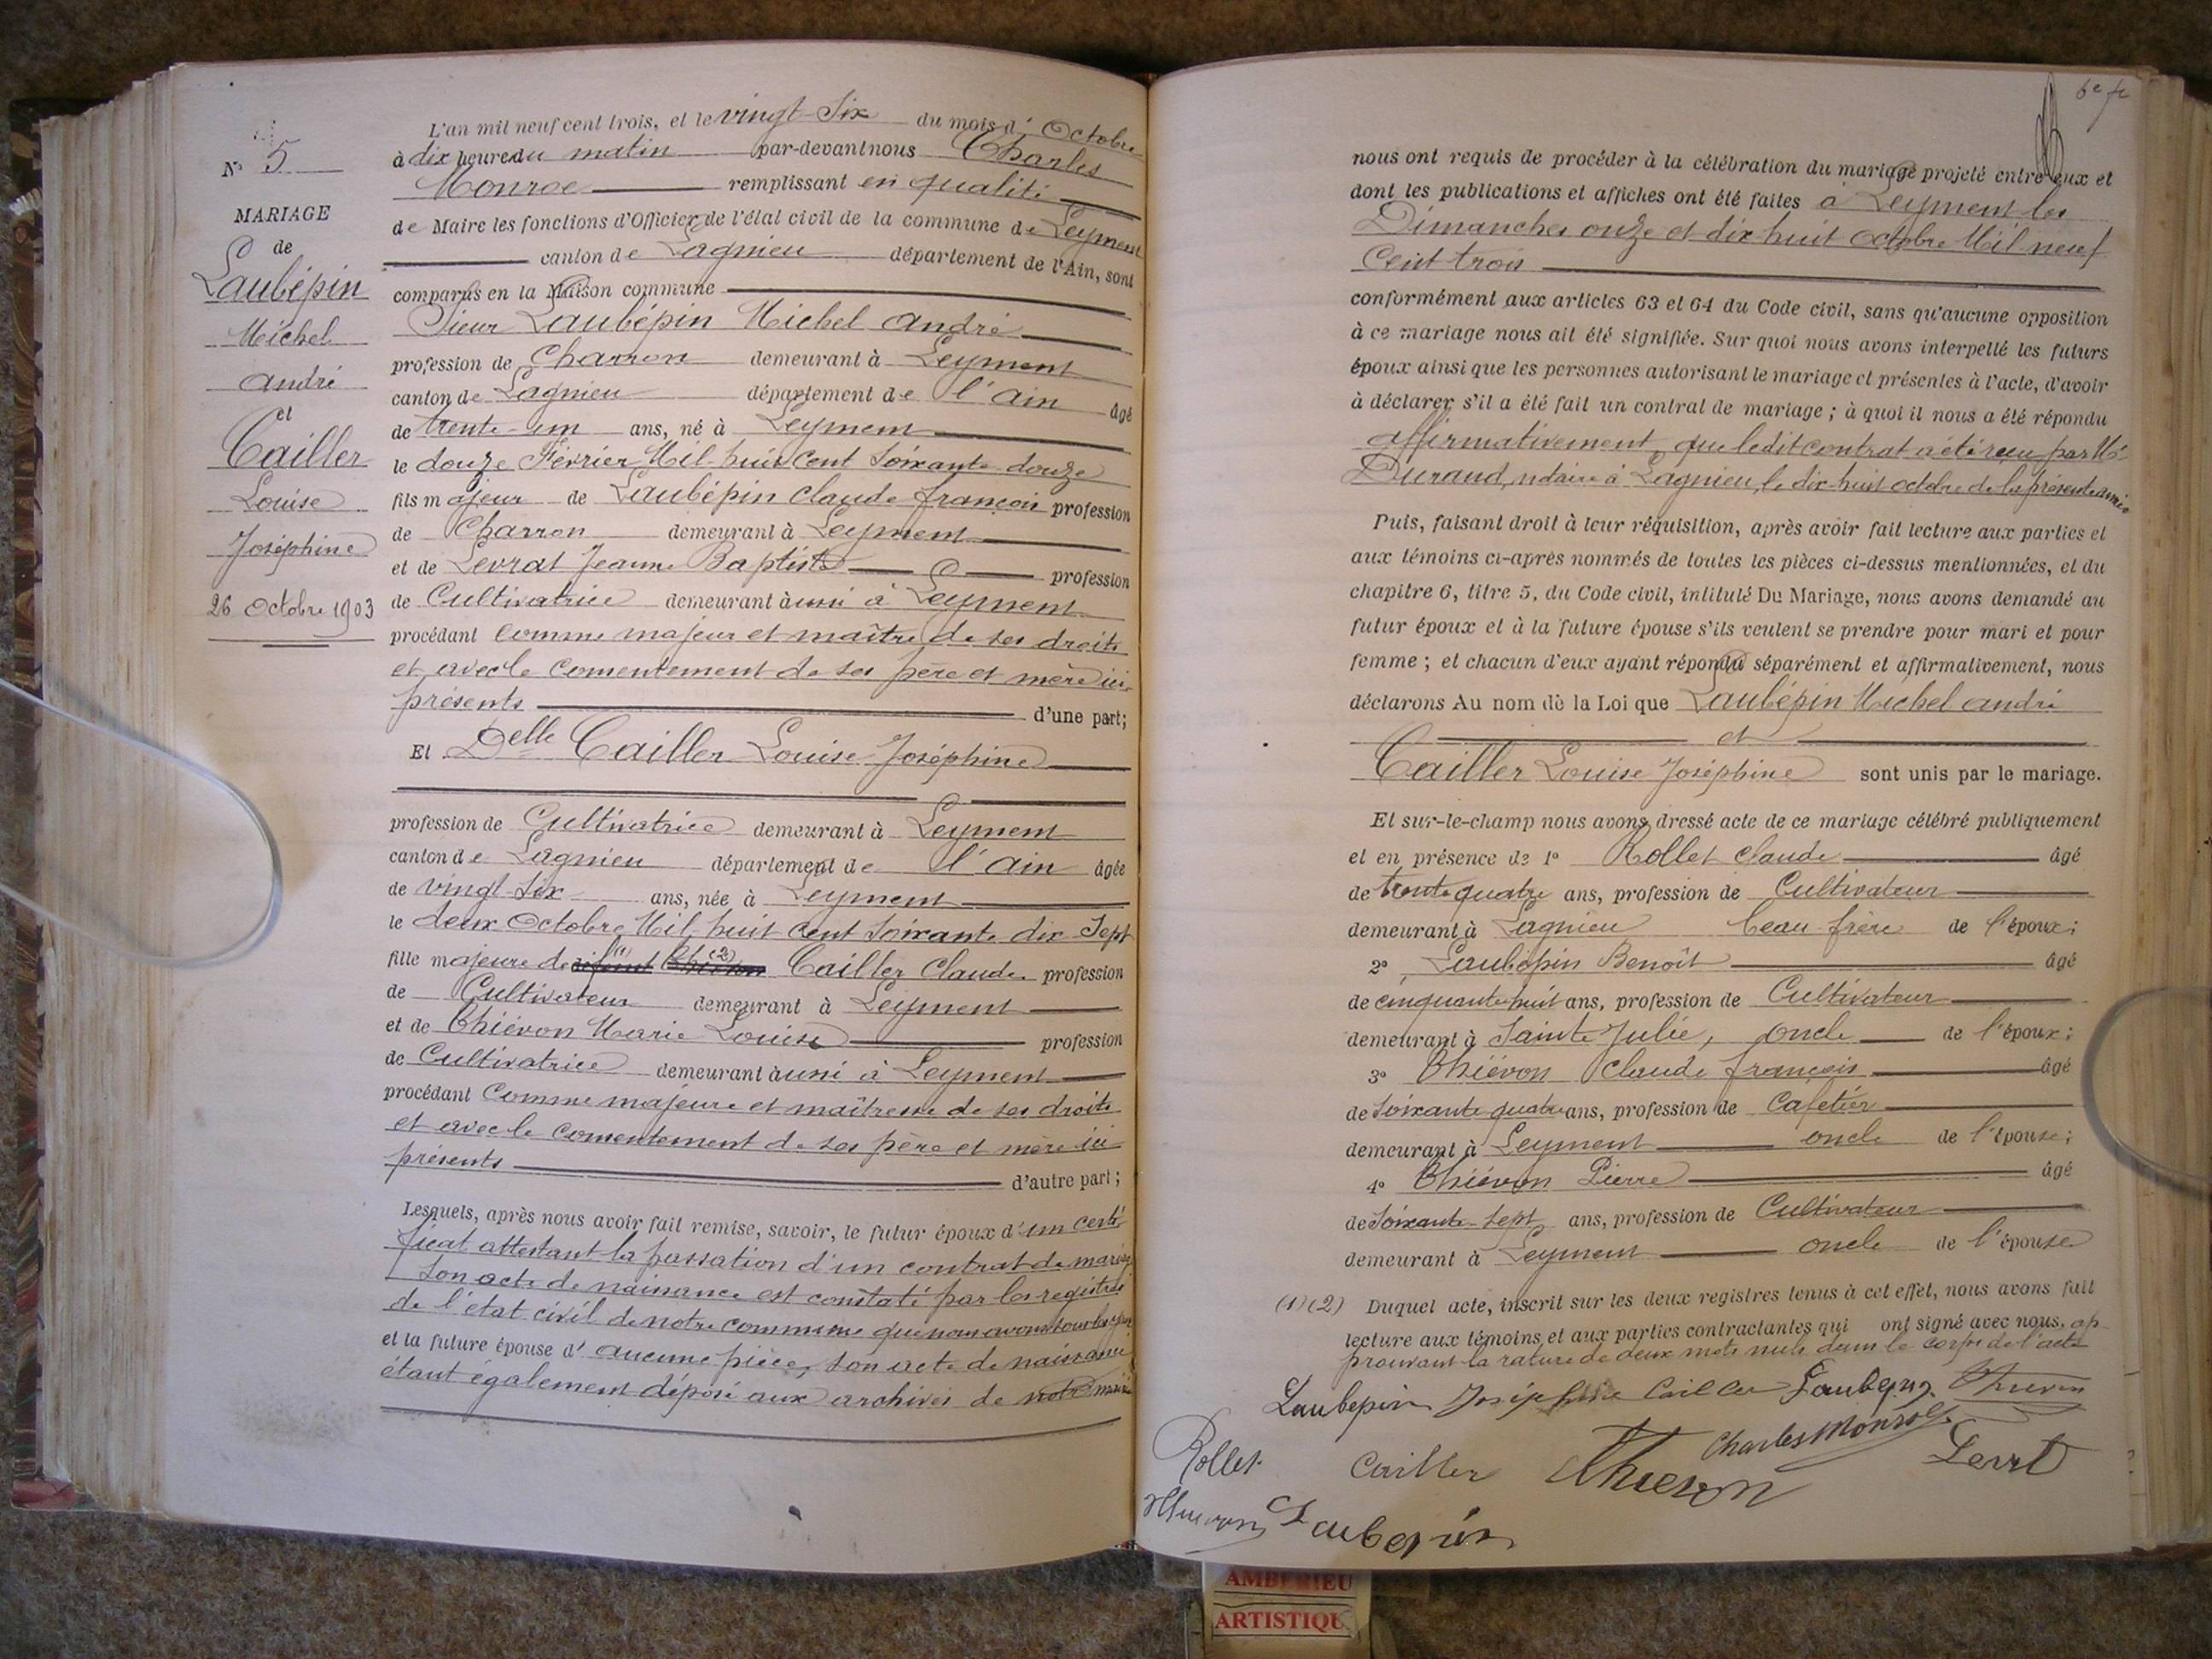 N° 5
MARIAGE
de
Laubépin
Michel
André
et
Cailler
Louise
Joséphine
26 Octobre 1903
L'an mil neuf cent trois, et le vingt-Six du mois d' Octobre
à dix heures du matin par-devant nous Charles
Monroe remplissant en qualité
de Maire les fonctions d'Officier de l'état civil de la commune de Leyment
canton de Lagnieu département de l'Ain, sont
comparus en la Maison commune
Sieur Laubépin Michel André
profession de Charron demeurant à Leyment
canton de Lagnieu département de l'Ain âgé
de trente-un ans, né à Leyment
le douze Février Mil-huit Cent Soixante-douze
fils majeur de Laubépin Claude françois profession
de Charron demeurant à Leyment
et de Levrat Jeanne Baptiste profession
de Cultivatrice demeurant aussi à Leyment
procédant Comme majeur et maître de ses droits
et avec le consentement de ses père et mère ici
présents d'une part;
Et Delle Cailler Louise Joséphine
profession de Cultivatrice demeurant à Leyment
canton de Lagnieu département de l'Ain âgée
de vingt-Six ans, née à Leyment
le deux Octobre Mil huit Cent Soixante dix-Sept
fille majeure de (1) (2) Cailler Claude profession
de Cultivateur demeurant à Leyment
et de Thiévon Marie Louise profession
de Cultivatrice demeurant aussi à Leyment
procédant Comme majeure et maîtresse de ses droits
et avec le consentement de ses père et mère ici
présents d'autre part;
Lesquels, après nous avoir fait remise, savoir, le futur époux d'un certi-
ficat attestant la passation d'un contrat de mariage
Son acte de naissance est constaté par les registres
de l'état civil de notre commune que nous avons sous les yeux
et la future épouse d'aucune pièce, son acte de naissance
étant également déposé aux archives de notre mairie
6e f
nous ont requis de procéder à la célébration du mariage projeté entre eux et
dont les publications et affiches ont été faites à Leyment les
Dimanches onze et dix-huit octobre Mil neuf
Cent trois
conformément aux articles 63 et 64 du Code civil, sans qu'aucune opposition
à ce mariage nous ait été signifiée. Sur quoi nous avons interpellé les futurs
époux ainsi que les personnes autorisant le mariage et présentes à l'acte, d'avoir
à déclarer s'il a été fait un contrat de mariage; à quoi il nous a été répondu
affirmativement que ledit contrat a été reçu par Me
Durand, notaire à Lagnieu, le dix-huit octobre de la présente année
Puis, faisant droit à leur réquisition, après avoir fait lecture aux parties et
aux témoins ci-après nommés de toutes les pièces ci-dessus mentionnées, et du
chapitre 6, titre 5, du Code civil, intitulé Du Mariage, nous avons demandé au
futur époux et à la future épouse s'ils veulent se prendre pour mari et pour
femme; et chacun d'eux ayant répondu séparément et affirmativement, nous
déclarons Au nom de la Loi que Laubépin Michel André
et
Cailler Louise Joséphine sont unis par le mariage.
Et sur-le-champ nous avons dressé acte de ce mariage célébré publiquement
et en présence de 1° Rollet Claude âgé
de trente quatre ans, profession de Cultivateur
demeurant à Lagnieu beau-frère de l'époux;
2° Laubépin Benoît âgé
de cinquante huit ans, profession de Cultivateur
demeurant à Sainte Julie, oncle de l'époux;
3° Thiévon Claude françois âgé
de Soixante quatre ans, profession de Cafetier
demeurant à Leyment oncle de l'épouse;
4° Thiévon Pierre âgé
de Soixante-sept ans, profession de Cultivateur
demeurant à Leyment oncle de l'épouse
(1) (2) Duquel acte, inscrit sur les deux registres tenus à cet effet, nous avons fait
lecture aux témoins et aux parties contractantes qui ont signé avec nous. ap-
prouvant la rature de deux mots nuls dans le corps de l'acte
Laubepin Joséphine Cailler Laubepin Thievon
Charles Monroe
Rollet Cailler Thievon Levrat
Thievon Laubepin
AMBERIEU
ARTISTIQUE